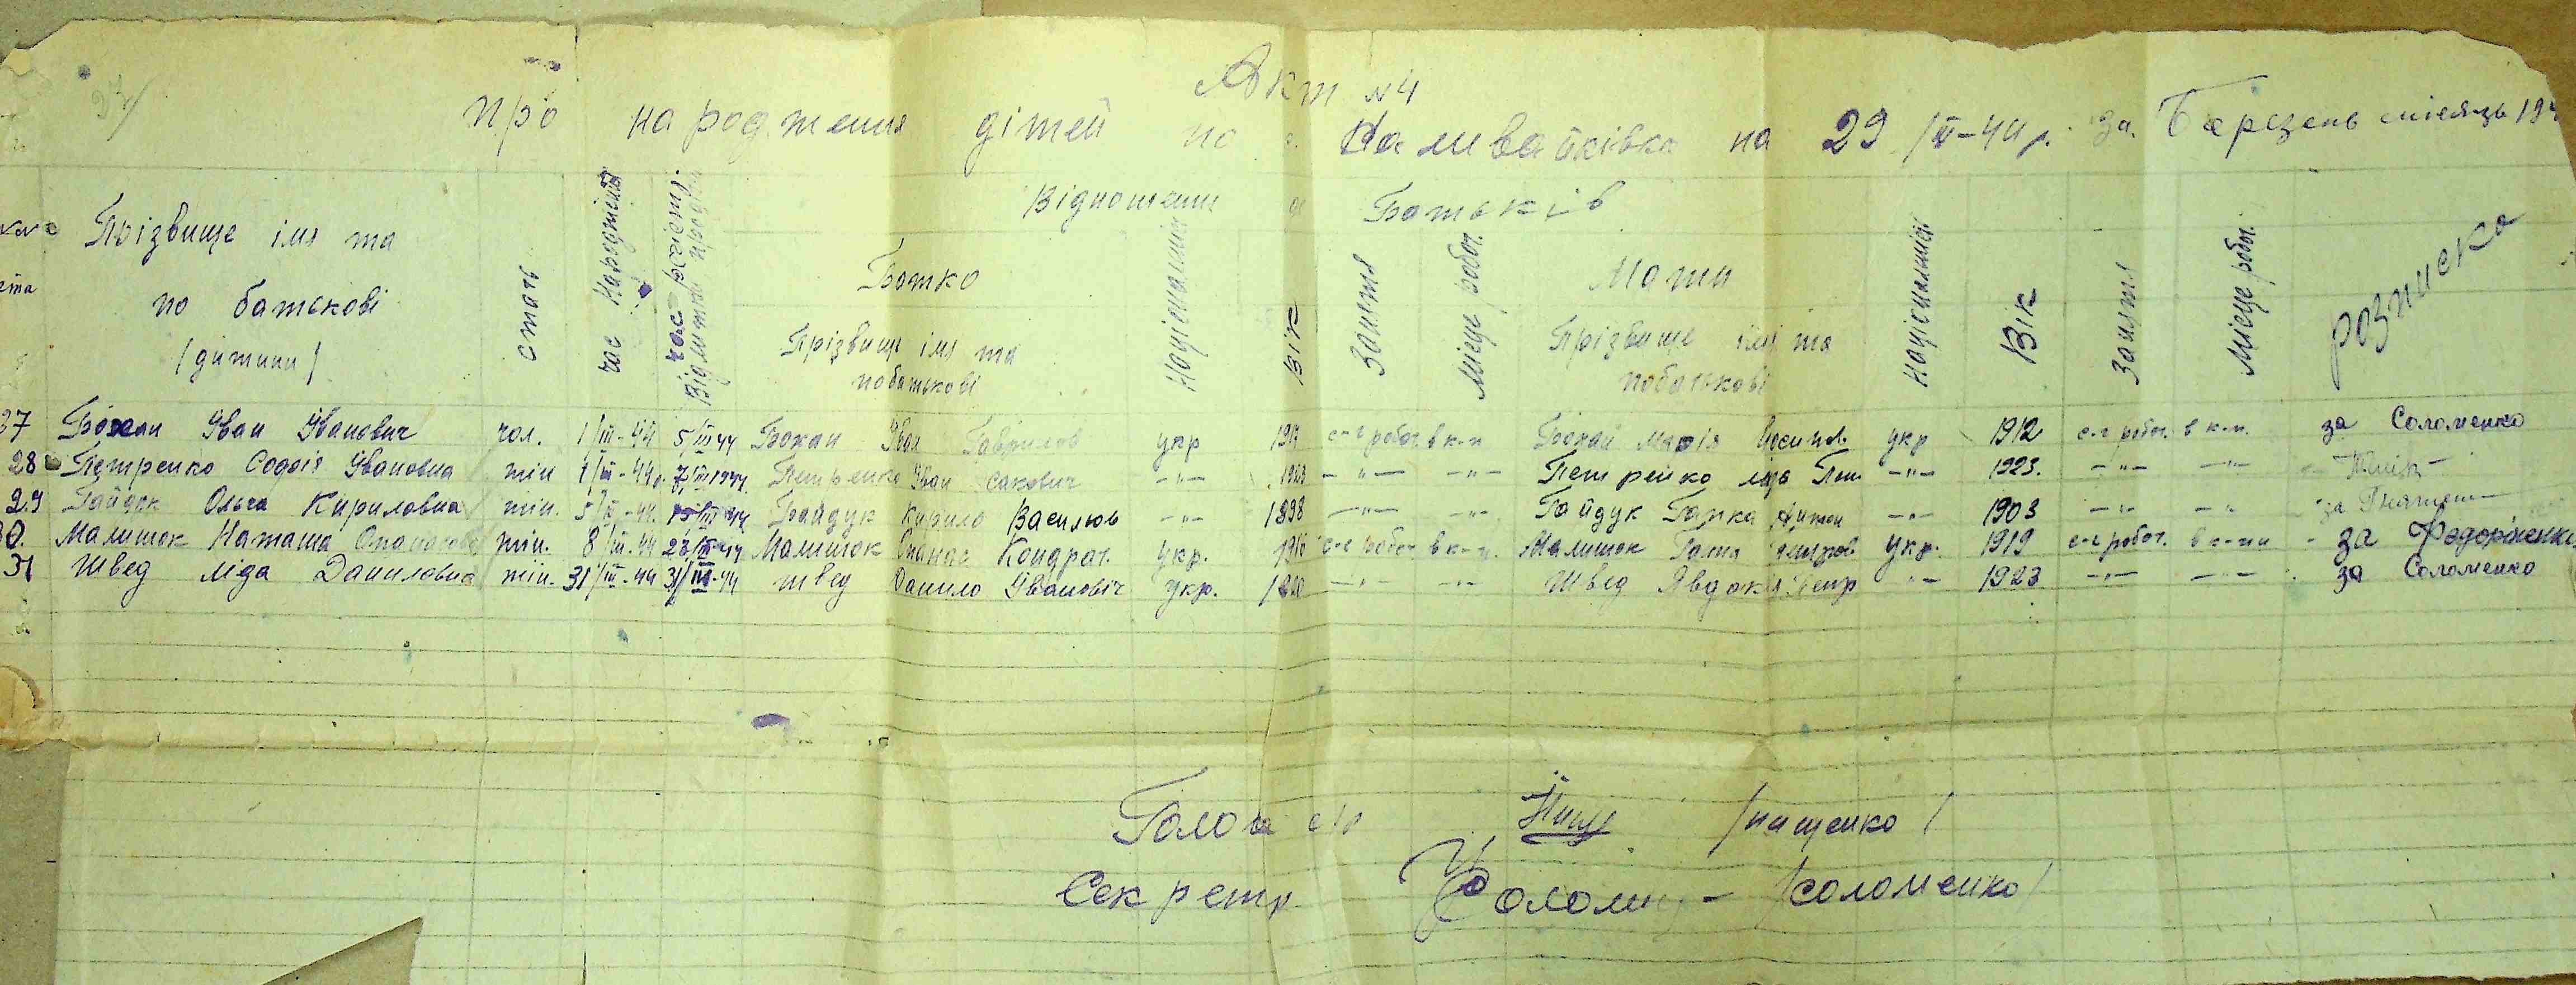 Акт №4
про народження дітей по с. Наливайківка на 29/III-44р. за Березень місяць 194
Відношення до Батьків
Прізвище імя та по батькові /дитини/
стать
час народження
час реєстр.
Батко
Прізвище імя та побатькові
Національність
Вік
Заняття
Місце робот.
Мати
Прізвище імя та побатькові
Національність
Вік
Заняття
Місце робот.
розписка
27 Бокан Іван Іванович чол. 1/III-44 5/III 44 Бокан Іван Гаврилов укр с-г робот. в к-п Бокай Марія Йосипов. укр 1912 с-г робот. в к-п. за Соломенко
28 Петренко Софія Івановна жін 1/III-44р. 7/III 1944. Петренко Іван Сакович -"- -"- -"- Петренко -"- 1923. -"- -"-
29 Гайдук Ольга Кириловна жін. 5/III-44. 15/III 44 Гайдук Кирило Василюв -"- 1898 -"- -"- Гайдук Ганка Антон -"- 1903 -"- -"- за
30. Малишок Наташа Опанасовна жін. 8/III-44 28/III-44 Малишок Опанас Кондрат. укр. с-г робот в к-п. Малишок Дмитров укр. 1919 с-г робот. в к-пи - за Федоріненко
31 Швед Ліда Даниловна жін. 31/III-44 31/III-44 Швед Данило Івановіч укр. -"- -"- Швед Явдокія Петр -"- 1923 -"- -"- за Соломенко
Голова с/р /пащенко/
Секретр Соломен- /соломенко/